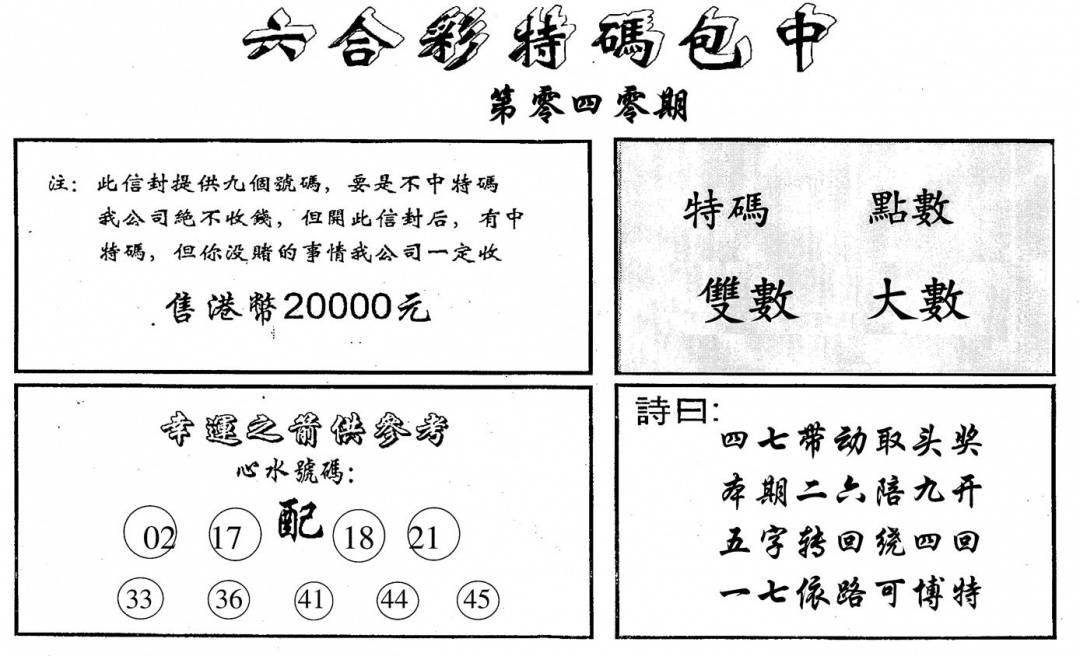 六合彩特碼包中
第零四零期
注：此信封提供九個號碼，要是不中特碼
我公司絕不收錢，但開此信封后，有中
特碼，但你没賭的事情我公司一定收
售港幣20000元
特碼 點數
雙數 大數
幸運之箭供參考
心水號碼：
配
02 17 18 21
33 36 41 44 45
詩曰：
四七带动取头奖
本期二六陪九开
五字转回绕四回
一七依路可博特